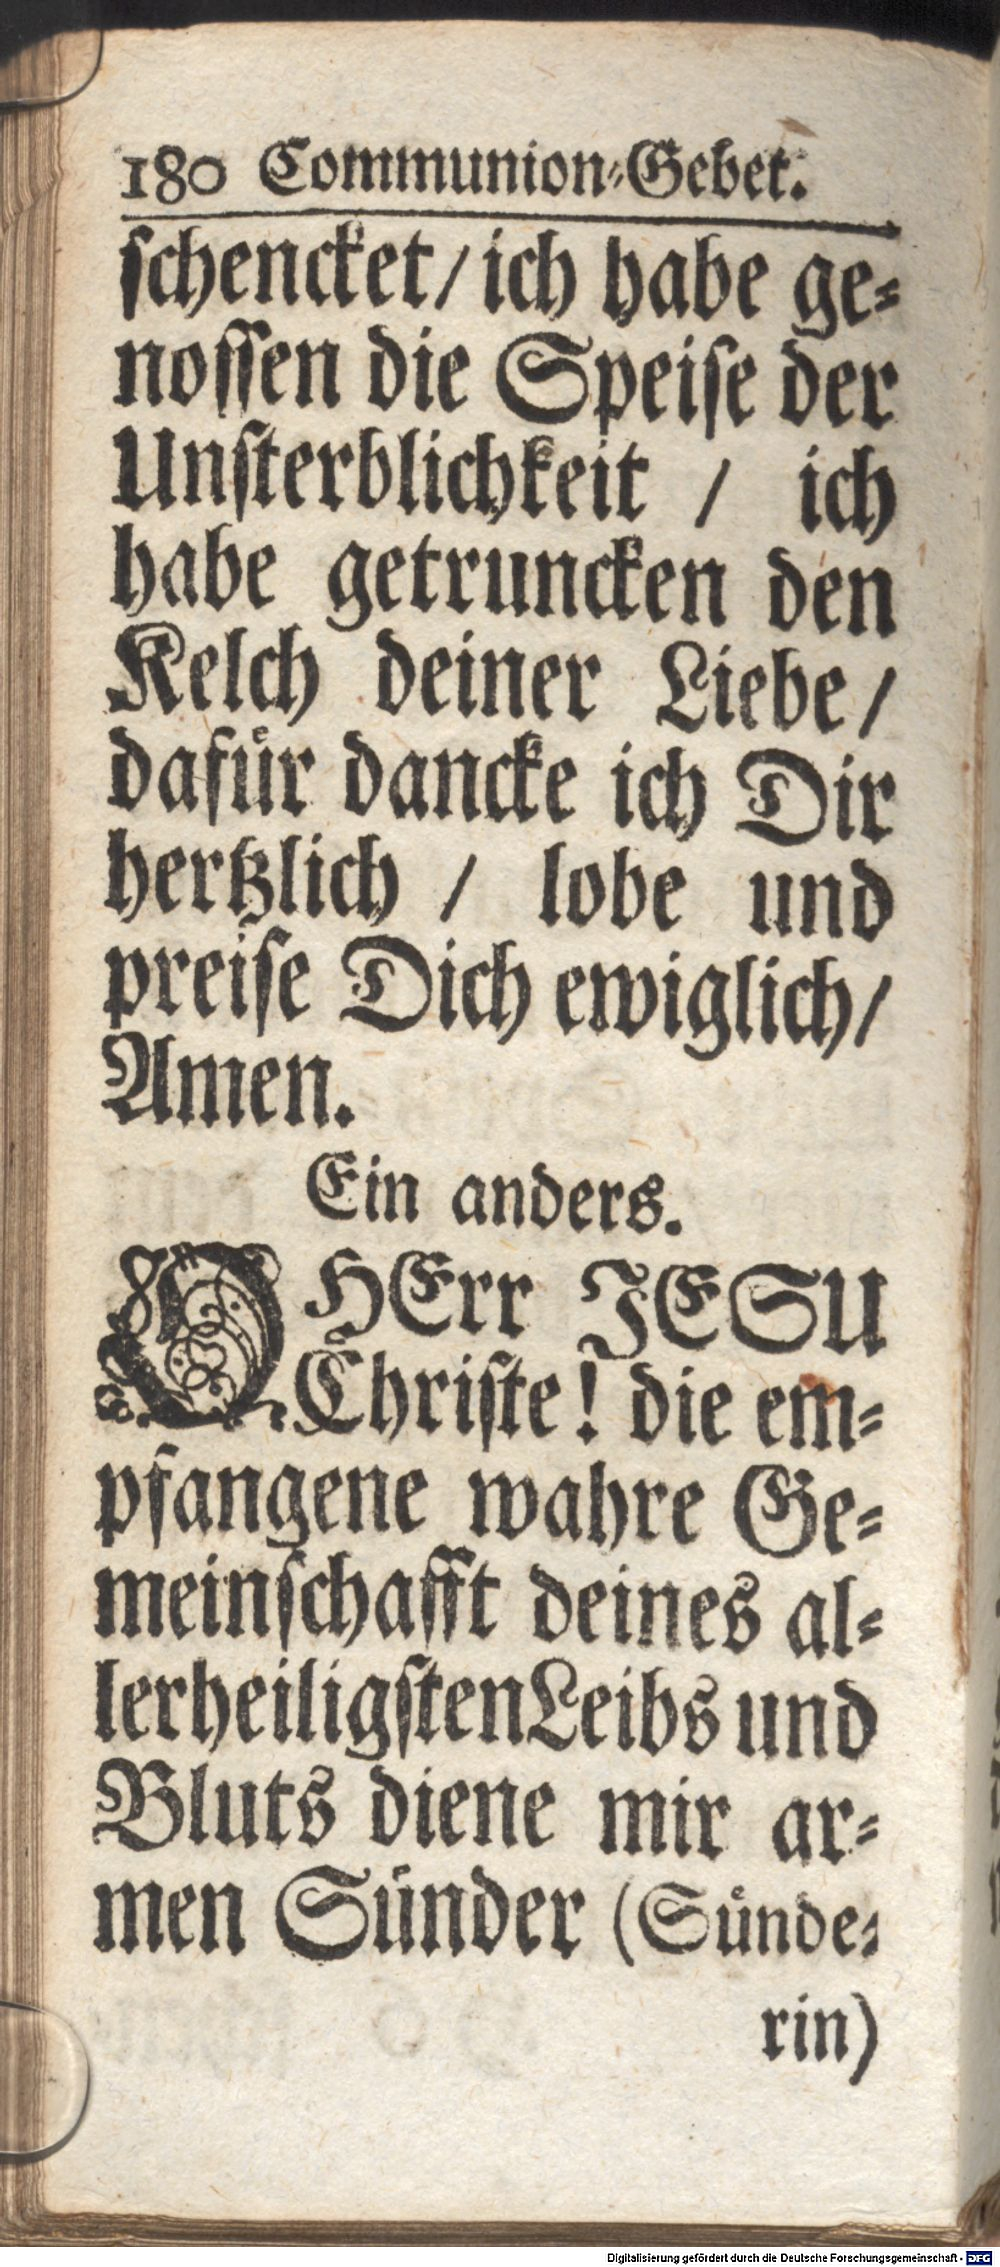 180 Communion-Gebet.
schencket/ ich habe ge-
nossen die Speise der
Unsterblichkeit / ich
habe getruncken den
Kelch deiner Liebe/
dafür dancke ich Dir
hertzlich / lobe und
preise Dich ewiglich/
Amen.
Ein anders.
O HErr JESU
Christe! die em-
pfangene wahre Ge-
meinschafft deines al-
lerheiligsten Leibs und
Bluts diene mir ar-
men Sünder (Sünde-
rin)
Digitalisierung gefördert durch die Deutsche Forschungsgemeinschaft - DFG